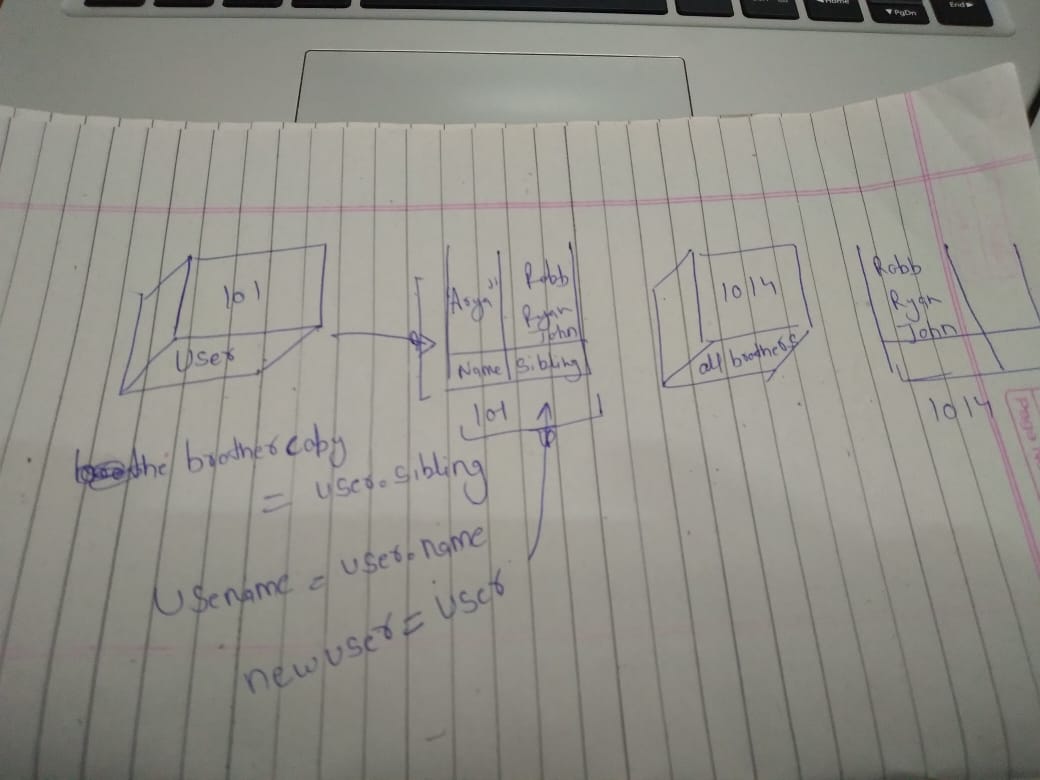 Home
PgDn
End
101
User
"Arya"
Robb
Ryan
John
Name
Sibling
101
1014
all brothers
Robb
Ryan
John
1014
the brother copy
= user.sibling
Usename = user.name
newuser = user